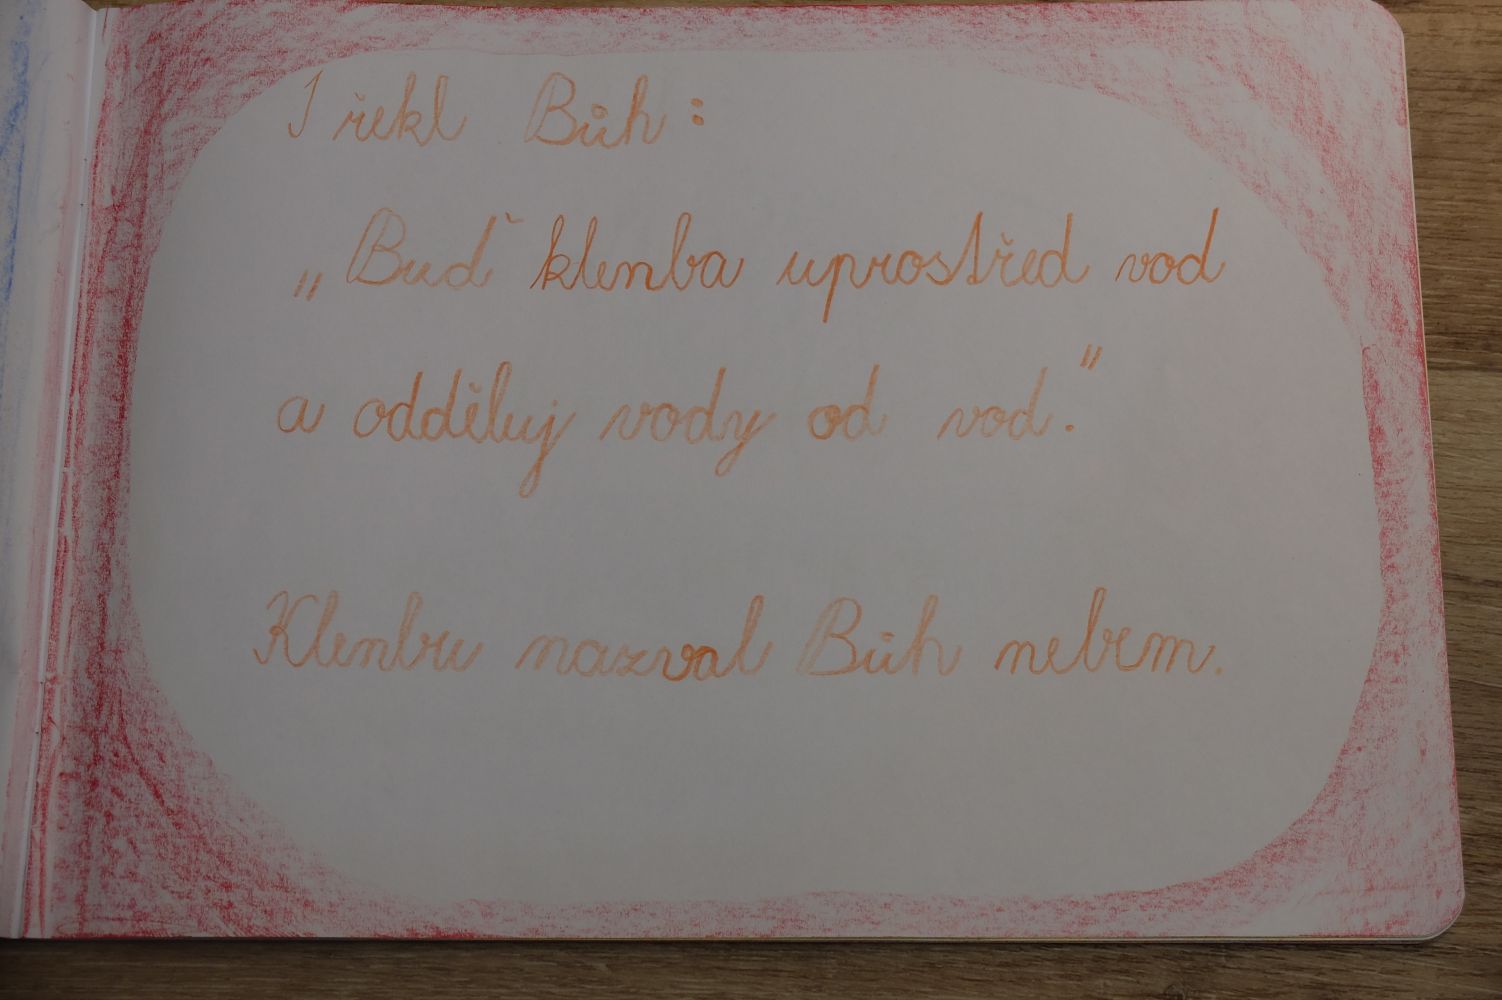 I řekl Bůh:
„Buď klenba uprostřed vod
a odděluj vody od vod."
Klenbu nazval Bůh nebem.